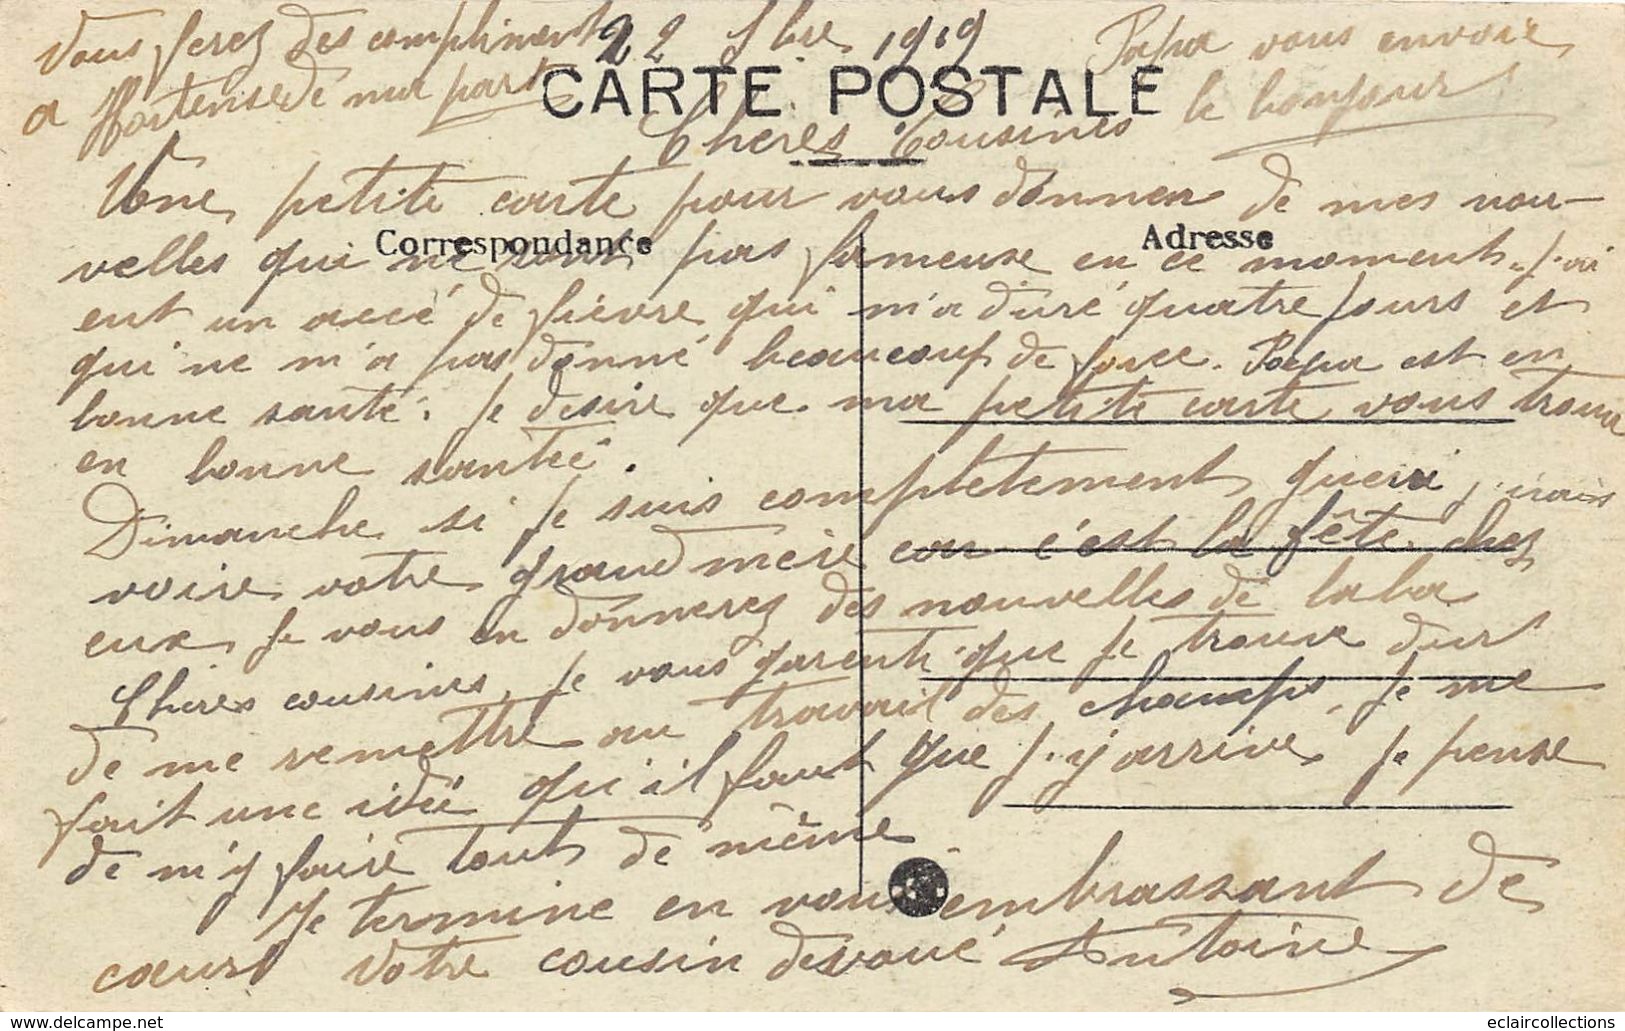 Vous ferez des compliments
a Hortense de ma part
22 8bre 1919
Papa vous envoie
le bonjour
CARTE POSTALE
Chères Cousines
Une petite carte pour vous donner de mes nou-
velles qui ne sont pas fameuse en ce moment. J'ai
Correspondance
Adresse
eut un accé de fièvre qui m'a duré quatre jours et
qui ne m'a pas donné beaucoup de force. Papa est en
bonne santé. Je desire que ma petite carte vous trouve
en bonne santé.
Dimanche si je suis complètement gueri j'irais
voire votre grand mère car c'est la fête chez
eux je vous en donnerez des nouvelles de laba
Chères cousines, je vous garenti que je trouve dur
de me remettre au travail des champs, je me
fait une idée qu'il faut que j'y arrive, je pense
de m'y faire tout de même
Je termine en vous embrassant de
cœur votre cousin dévoué Antoine
© www.delcampe.net
eclaircollections